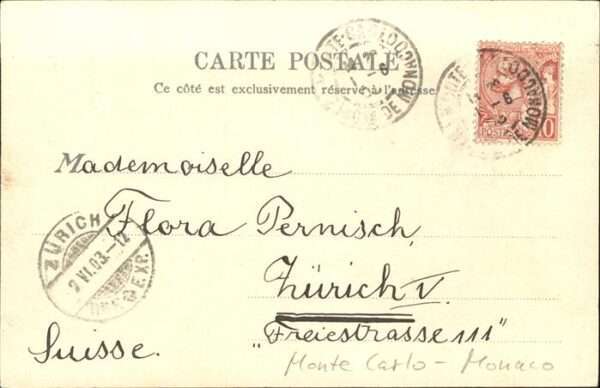 CARTE POSTALE
Ce côté est exclusivement réservé à l'adresse
Mademoiselle
Flora Pernisch,
Zürich V.
„Freiestrasse 111"
Suisse.
Monte Carlo - Monaco
ZÜRICH
2 VI.03.-12
EXP.
MONTE-CARLO
MONACO